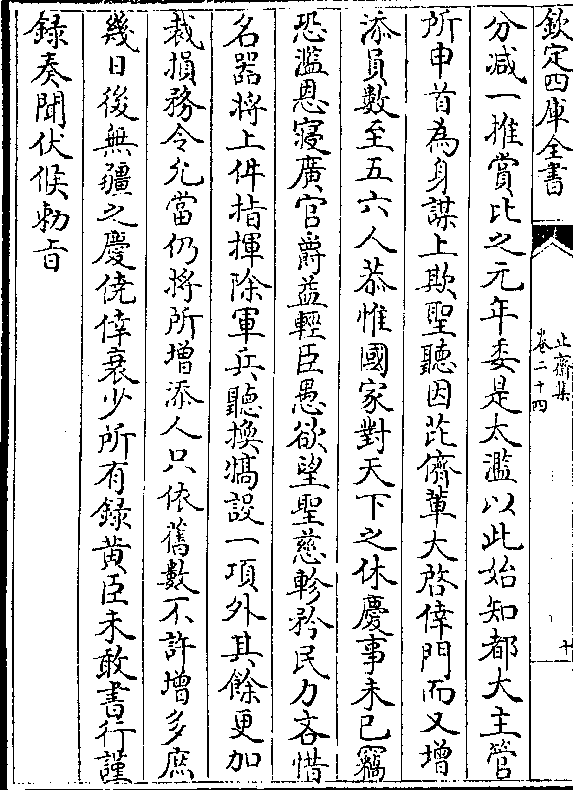 欽定四庫全書
止齋集
卷二十四
十
分減一推賞比之元年委是太濫以此始知都大主管
所申首為身謀上欺聖聽因茈儕輩大啓倖門而又增
添員數至五六人恭惟國家對天下之休慶事未已竊
恐濫恩寖廣官爵益輕臣愚欲望聖慈軫矜民力吝惜
名器將上件指揮除軍兵聽換犒設一項外其餘更加
裁損務令允當仍將所增添人只依舊數不許增多庶
幾日後無疆之慶僥倖衰少所有録黄臣未敢書行謹
録奏聞伏候勑旨